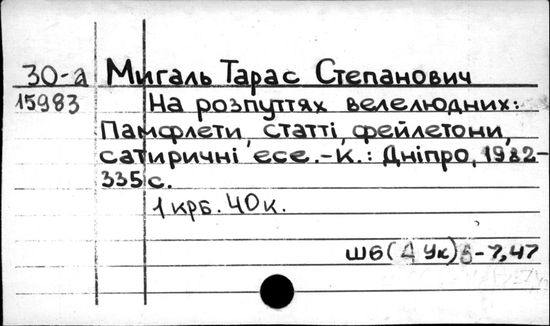 30-а Мигаль Тарас Степанович
15983 На розпуттях велелюдних:
Памфлети, статті, фейлетони,
сатиричні есе.-К.: Дніпро, 1982-
335 с.
1 крб. 40 к.
Ш6(4Ук) -7,47